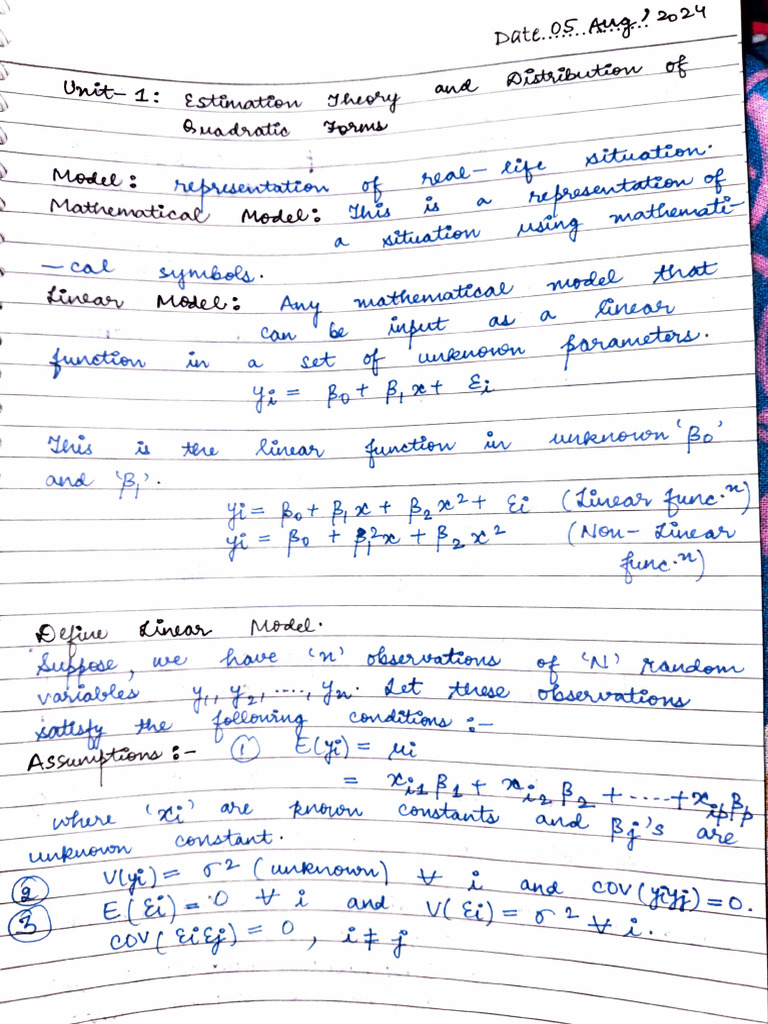 Date 05 Aug' 2024
Unit-1: Estimation Theory and Distribution of
Quadratic Forms
Model: representation of real-life situation.
Mathematical Model: This is a representation of
a situation using mathemati-
-cal symbols.
Linear Model: Any mathematical model that
can be input as a linear
function in a set of unknown parameters.
yi = β0 + β1x + εi
This is the linear function in unknown 'β0'
and 'β1'.
yi = β0 + β1x + β2x² + εi (Linear func.ⁿ)
yi = β0 + β1²x + β2x² (Non-Linear
func.ⁿ)
Define Linear Model.
Suppose, we have 'n' observations of 'N' random
variables y1, y2, ...., yn. Let these observations
satisfy the following conditions :-
Assumptions :- ① E(yi) = μi
= xi1 β1 + xi2 β2 + ....+ xip βp
where 'xi' are known constants and βj's are
unknown constant.
② V(yi) = σ² (unknown) ∀ i and cov(yiyj) = 0.
③ E(εi) = 0 ∀ i and V(εi) = σ² ∀ i.
cov(εiεj) = 0, i ≠ j